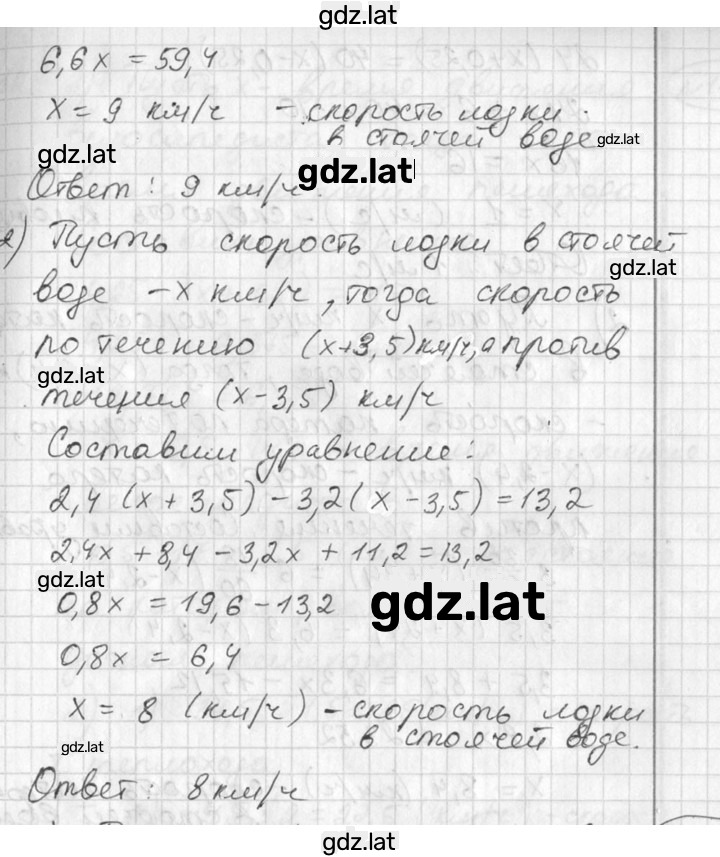 gdz.lat
6,6x = 59,4
x = 9 км/ч - скорость лодки
в стоячей воде
gdz.lat
gdz.lat
gdz.lat
Ответ: 9 км/ч.
2) Пусть скорость лодки в стоячей
gdz.lat
воде - x км/ч, тогда скорость
по течению (x+3,5) км/ч, а против
gdz.lat
течения (x-3,5) км/ч
Составим уравнение:
2,4 (x + 3,5) - 3,2 (x - 3,5) = 13,2
2,4x + 8,4 - 3,2x + 11,2 = 13,2
gdz.lat
0,8x = 19,6 - 13,2
gdz.lat
0,8x = 6,4
x = 8 (км/ч) - скорость лодки
в стоячей воде.
gdz.lat
Ответ: 8 км/ч
gdz.lat